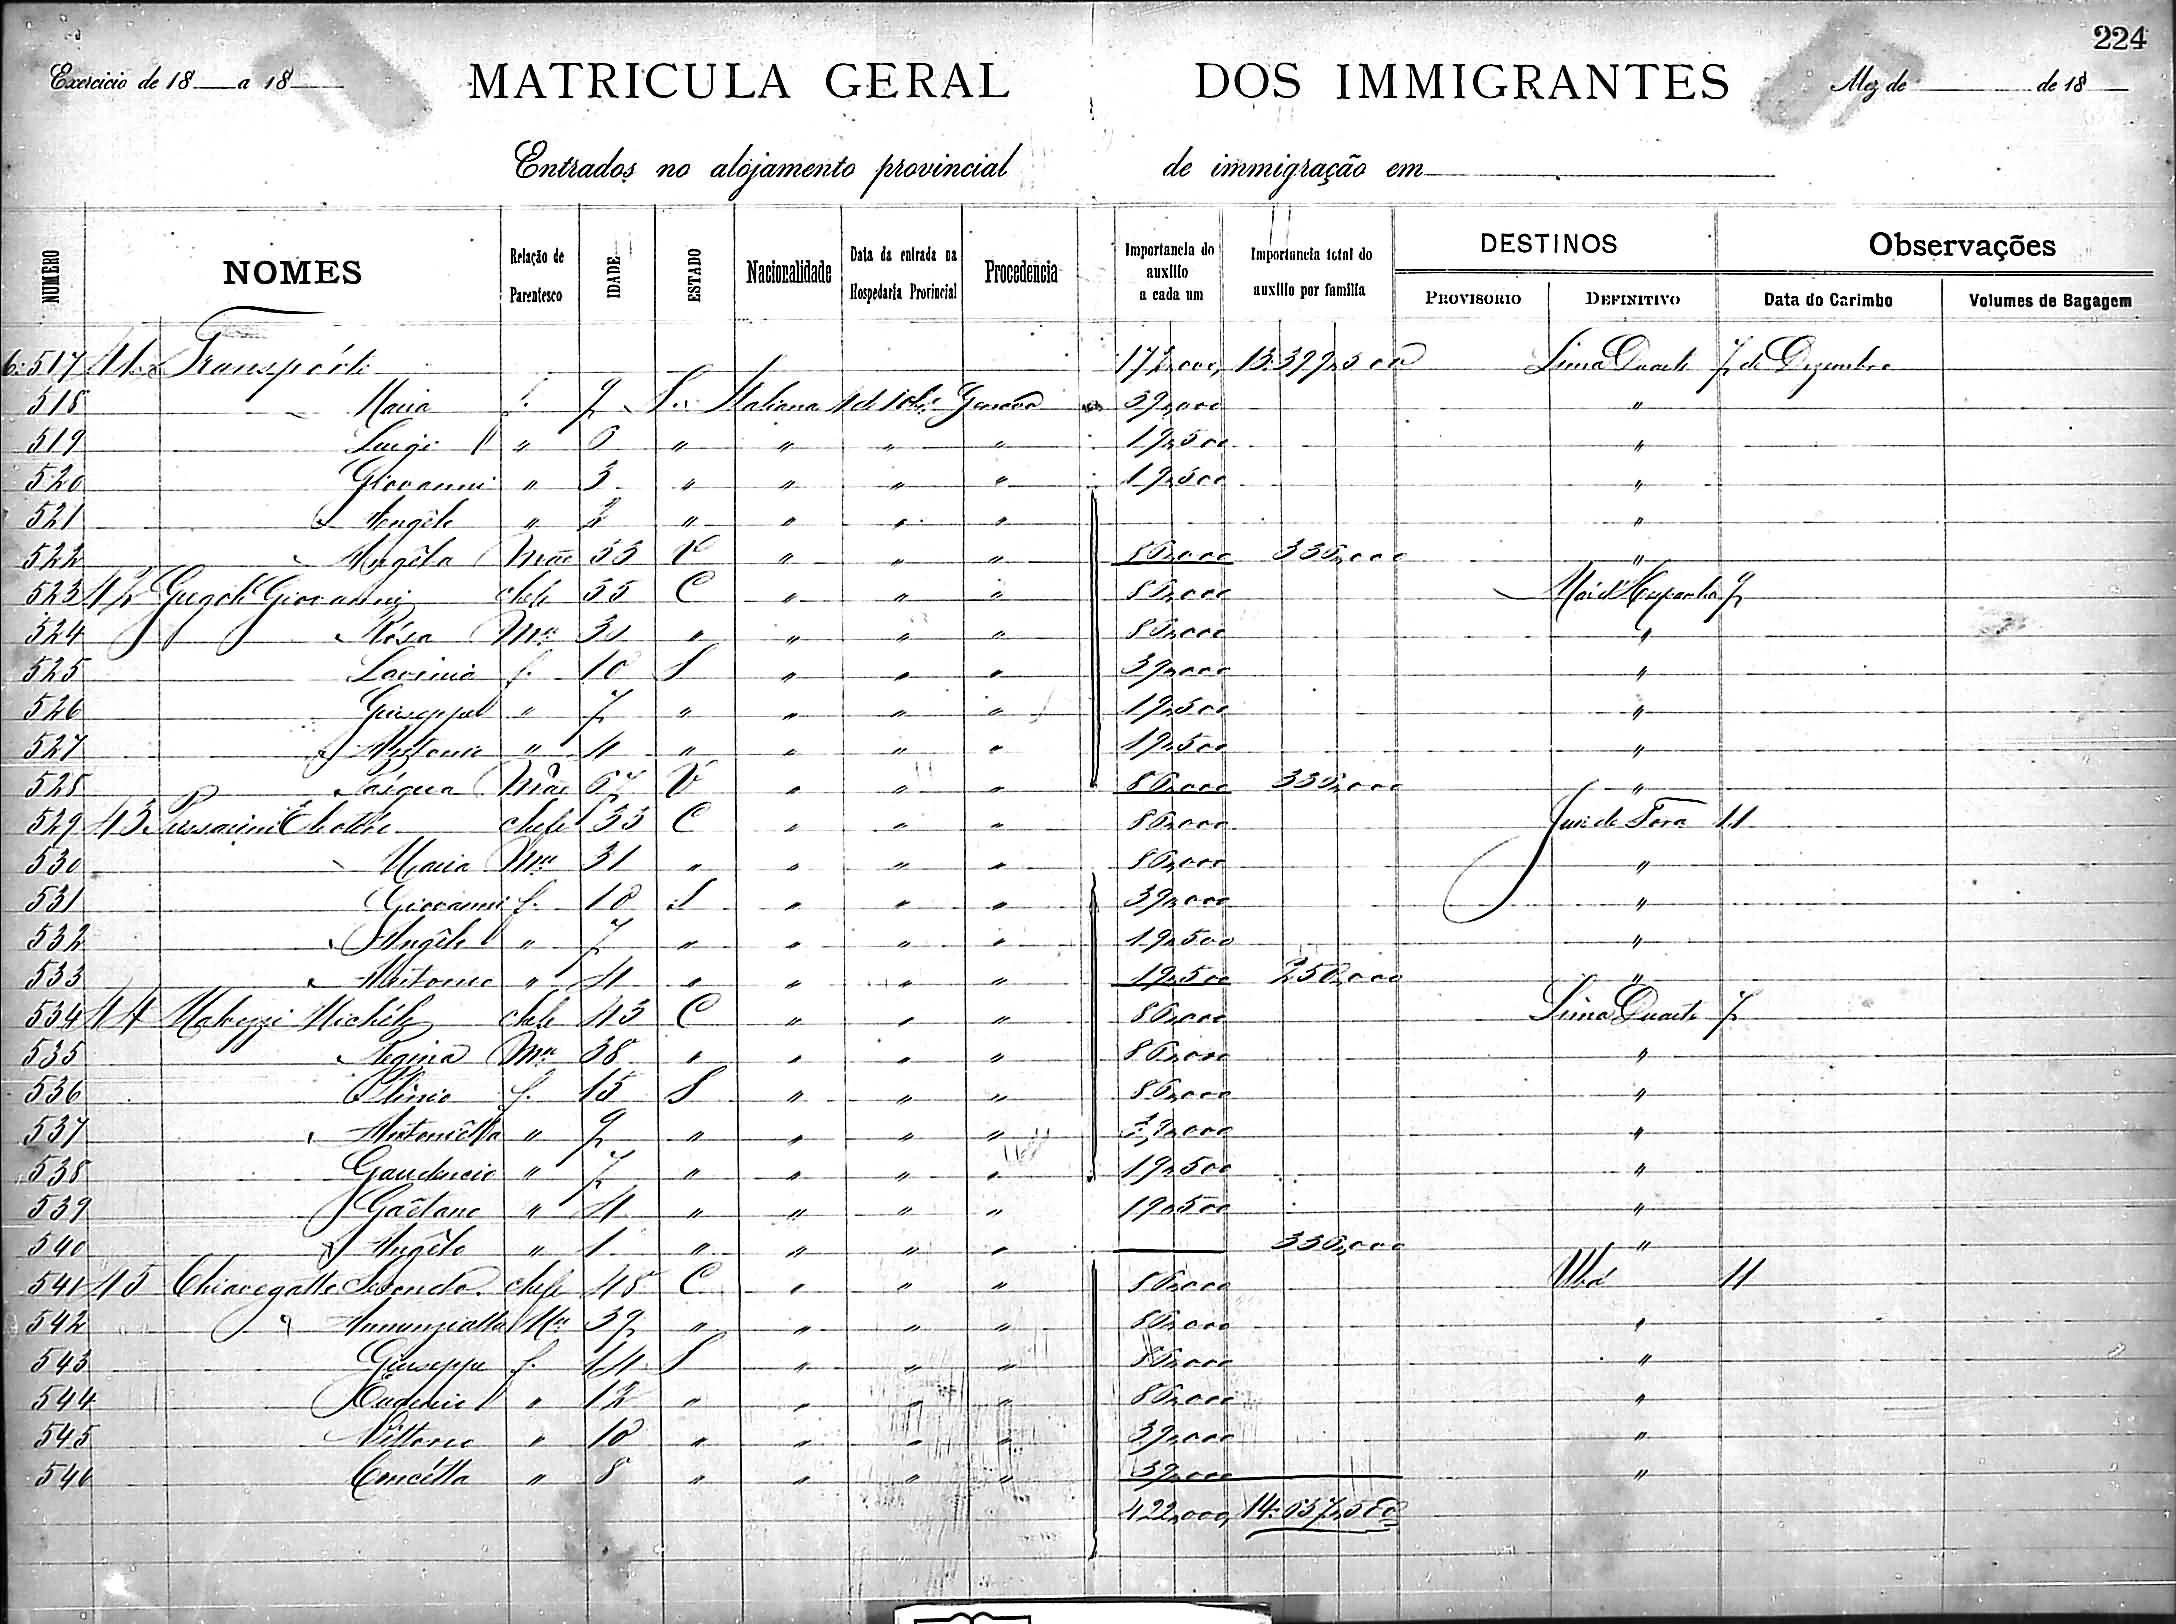 224
Exercicio de 18 a 18 MATRICULA GERAL DOS IMMIGRANTES Mez de de 18
Entrados no alojamento provincial de immigração em
NUMERO NOMES Relação de Parentesco IDADE ESTADO Nacionalidade Data da entrada na Hospedaria Provincial Procedencia Importancia do auxilio a cada um Importancia total do auxilio por familia DESTINOS PROVISORIO DEFINITIVO Observações Data do Carimbo Volumes de Bagagem
6:517 41 Transpórte 172,000 Lima Duarte 7 de Dezembro
518 Maria f. 9 S. Italiana Genova 39,000 "
519 Luigi " 6 " " " " 19,500 "
520 Giovanni " 3 " " " " 19,500 "
521 Angélo " 2 " " " " "
522 Angéla Mãe 53 V " " " 86,000 336,000 "
523 42 Giovanni chefe 35 C " " " 86,000 7
524 Rósa Mer 30 " " " " 86,000 "
525 Lavinia f. 10 S " " " 39,000 "
526 Giuseppe " 7 " " " " 19,500 "
527 Antonio " 4 " " " " 19,500 "
528 Pasqua Mãe 67 V " " " 86,000 336,000 "
529 43 chefe 33 C " " " 86,000 Juiz de Fora 11
530 Maria Mer 31 " " " " 86,000 "
531 Giovanni f. 10 S " " " 39,000 "
532 Angélo " 7 " " " " 19,500 "
533 Antonio " 4 " " " " 19,500 250,000 "
534 44 Michéle chefe 43 C " " " 86,000 Lima Duarte 7
535 Regina Mer 38 " " " " 86,000 "
536 Plinio f. 15 S " " " 86,000 "
537 Antoniétta " 9 " " " " 39,000 "
538 Gaudencio " 7 " " " " 19,500 "
539 Gaétano " 4 " " " " 19,500 "
540 Angélo " 1 " " " " 336,000 "
541 45 Chiavegatto Secondo chefe 48 C " " " 86,000 Ubá 11
542 " Annunziatta Mer 39 " " " " 86,000 "
543 Giuseppe f. 14 S " " " 86,000 "
544 Eugenio " 12 " " " " 86,000 "
545 Vittorio " 10 " " " " 39,000 "
546 Concétta " 8 " " " " 39,000 "
422,000 14:657,500